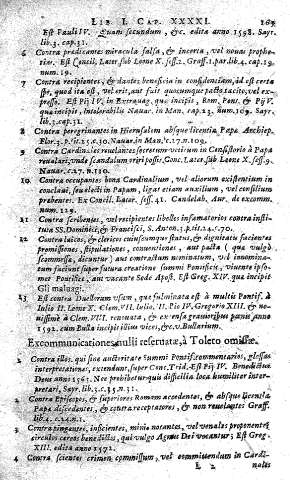 LIB. I. CAP. XXXXI. 169
Est Pauli IV. Quam secundum, &c, edita anno 1558. Sayr.
lib.3. cap.31.
6 Contra predicantes miracula falsa, & incerta, vel novas prophe-
tias. Est Concil. Later. sub Leone X. sess.1. Graff.1.par.lib.4. cap.19.
num.19.
7 Contra recipientes, & dantes beneficia in confidentiam, ad est certa
spe, quod ita est, vel erit, aut fuit quocumque pacto tacito, vel ex-
presso. Est Pij IV. in Extravag. que incipit, Rom. Pont. & Pij V.
que incipit, Intolerabilis Navar. in Man. cap.23. num.109. Sayr.
cap.31.
8 Contra peregrinantes in Hierusalem absque licentia Papa. Archiep.
Flor.3.p.tit.25.c.30. Navar. in Man.c.17.n.109.
9 Contra Cardin. les revelantes secretum vetitum in Consistorio à Papa
revelari, unde scandalum oriri posset. Conc. Later. sub Leone X. sess.9.
Navar.c.27.n.110.
10 Contra occupantes bona Cardinalium, vel aliorum existentium in
conclavi, seu electi in Papam, ligat etiam auxilium, vel consilium
prabentes. Ex Conc. Later. sess.41. Candelab. Aur. de excomm.
num.129.
11 Contra scribentes, vel recipientes libellos infamatorios contra insti-
tuta SS. Dominici, & Francisci, S. Anton.3.p.tit.24.c.70.
12 Contra laicos, & clericos cuiuscumque status, & dignitatis facientes
promissiones, stipulationes, conventiones, aut pacta (qua vulgò
scommesse, dicuntur) aut constitutum nominatum, vel innomina-
tum faciunt super futura creatione summi Pontificis, vivente ipso-
met Pontifice, aut vacante Sede Apost. Est Greg. XIV. qua incipit
Gli maluagi.
13 Est contra Duellorum usum, qua fulminata est à multis Pontif. à
Iulio II. Leone X. Clem. VII. Iulio III. Pio IV. Gregorio XIII. & no-
vissimè à Clem. VIII. renovata, & ex ensa gravioribus panis anno
1592. cum Bulla incipit illius vices, &c. v. Bullarium.
Excommunicationes nulli reservatæ, à Toleto omissæ.
1 Contra illos, qui sine auctoritate Summi Pontif. commentarios, glossas
interpretationes, extendunt, super Conc. Trid. Est Pij IV. Benedictus
Deus anno 1563. Nec prohibetur quis difficilia loca humiliter inter-
pretari. Sayr. lib.3.c.35.n.31.
2 Contra Episcopos, & superiores Romam accedentes, & absque licentia
Papa discedentes, & contra receptatores, & non revelantes Graff.
lib.4.c.22.n.1.
3 Contra tingentes, inficientes, minio notantes, vel venales proponentes
circulos cereos benedictos, qui vulgo Agnus Dei vocantur; Est Greg.
XIII. edita anno 1572.
4 Contra scientes crimen commissum, vel committendum in Cardi-
L 2 nales